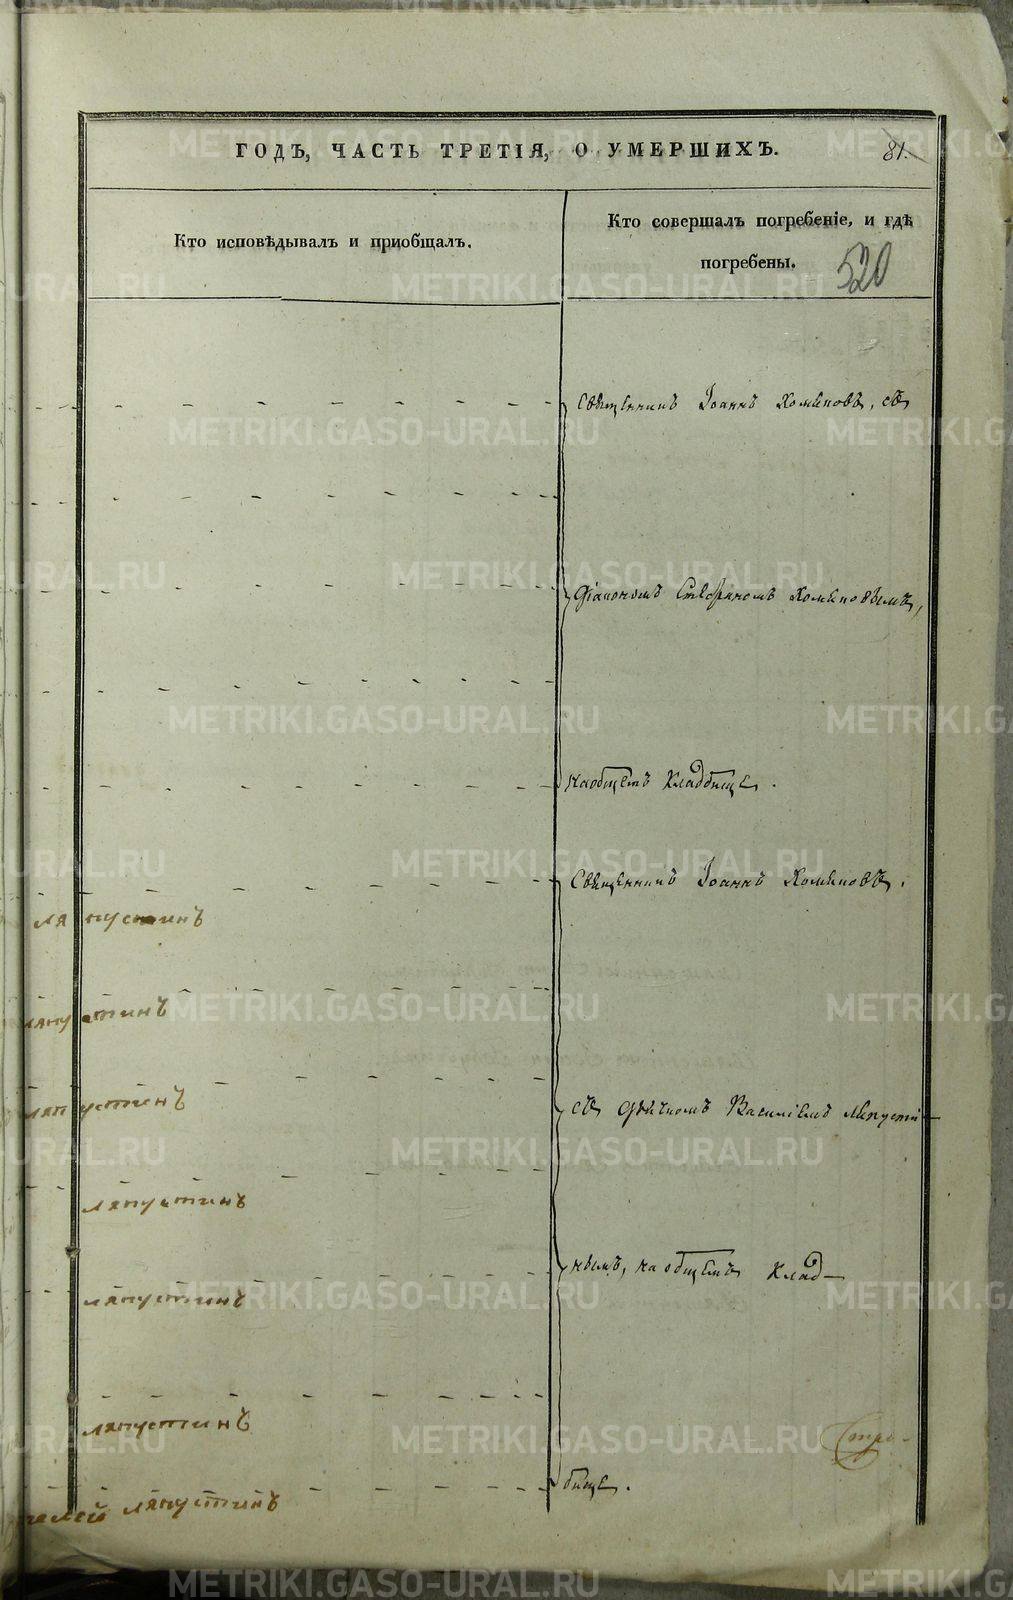 ГОДЪ, ЧАСТЬ ТРЕТІЯ, О УМЕРШИХЪ.
81.
Кто исповѣдывалъ и пріобщалъ.
Кто совершалъ погребеніе, и гдѣ
погребены.
520
Священникъ Іоаннъ Хомяковъ, съ
Діакономъ Стефаномъ Хомяковымъ,
на общемъ кладбище.
Священникъ Іоаннъ Хомяковъ.
ляпустинъ
ляпустинъ
ляпустинъ
съ дьячкомъ Василіемъ Ляпусти-
ляпустинъ
нымъ, на общемъ клад-
ляпустинъ
ляпустинъ
бище.
ляпустинъ
METRIKI.GASO-URAL.RU